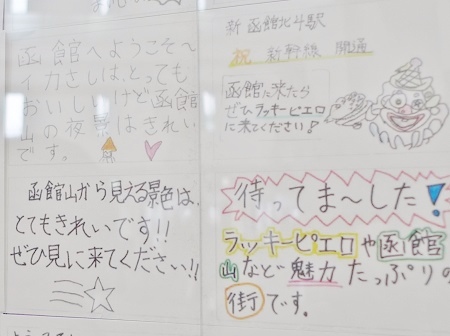 函館へようこそ～
イカさしは、とっても
おいしいけど函館
山の夜景はきれい
です。
新函館北斗駅
祝 新幹線 開通
函館に来たら
ぜひラッキーピエロ
に来てください!
函館山から見える景色は、
とてもきれいです!!
ぜひ見に来てください!!
待ってま～した!
ラッキーピエロや函館
山など魅力たっぷりの
街です。